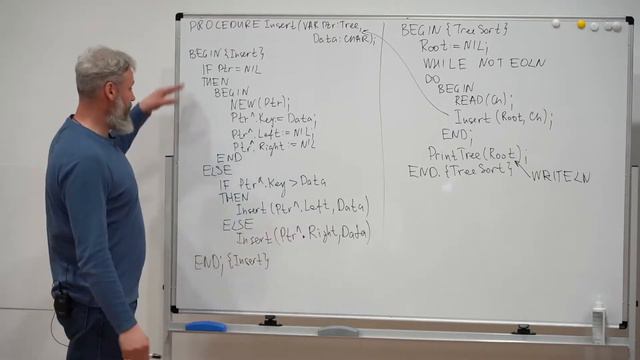 PROCEDURE Insert(VAR Ptr:Tree;
Data:CHAR);
BEGIN {Insert}
IF Ptr = NIL
THEN
BEGIN
NEW(Ptr);
Ptr^.Key:= Data;
Ptr^.Left:= NIL;
Ptr^.Right:= NIL
END
ELSE
IF Ptr^.Key > Data
THEN
Insert(Ptr^.Left, Data)
ELSE
Insert(Ptr^.Right, Data)
END; {Insert}
BEGIN {TreeSort}
Root:= NIL;
WHILE NOT EOLN
DO
BEGIN
READ(Ch);
Insert (Root, Ch);
END;
PrintTree(Root);
END. {TreeSort}
WRITELN